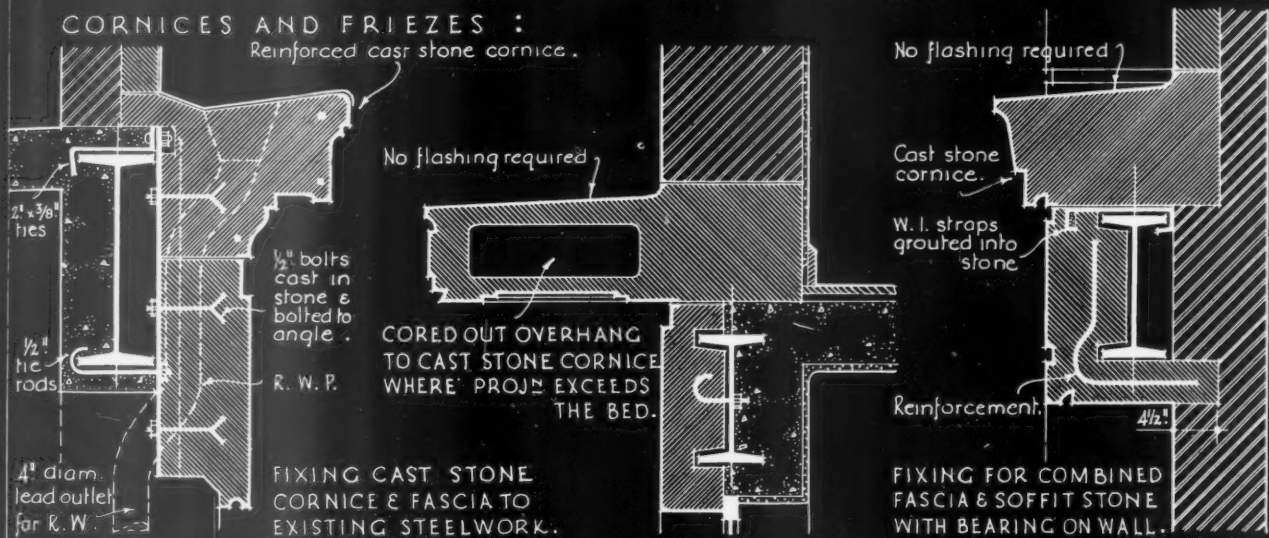 CORNICES AND FRIEZES :
Reinforced cast stone cornice.
2" x 3/8"
ties
1/2"
tie
rods
4" diam.
lead outlet
for R.W.
1/2" bolts
cast in
stone &
bolted to
angle.
R. W. P.
FIXING CAST STONE
CORNICE & FASCIA TO
EXISTING STEELWORK.
No flashing required
CORED OUT OVERHANG
TO CAST STONE CORNICE
WHERE PROJN EXCEEDS
THE BED.
No flashing required
Cast stone
cornice.
W. I. straps
grouted into
stone
Reinforcement.
4 1/2"
FIXING FOR COMBINED
FASCIA & SOFFIT STONE
WITH BEARING ON WALL.